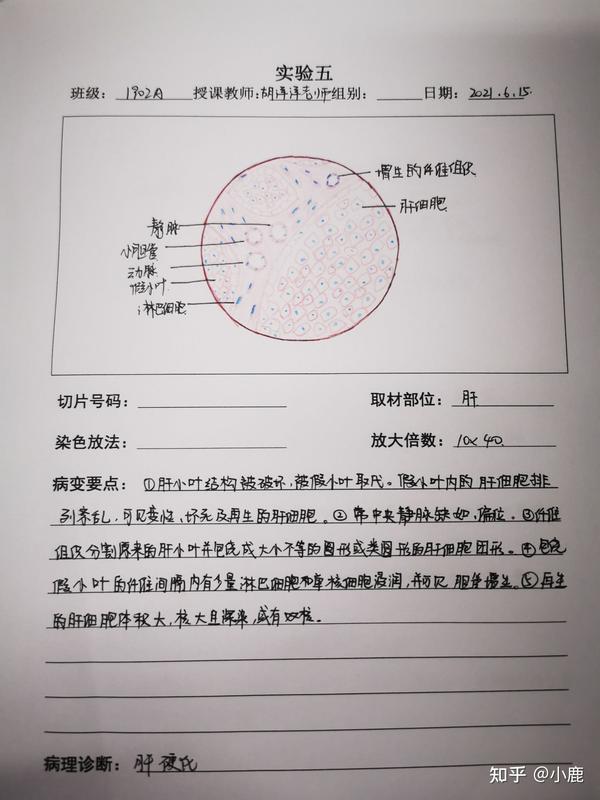 实验五
班级: 1902A 授课教师: 胡洋洋老师 组别: 日期: 2021.6.15.
增生的纤维组织
肝细胞
静脉
小胆管
动脉
假小叶
淋巴细胞
切片号码: 取材部位: 肝
染色放法: 放大倍数: 10×40.
病变要点: ①肝小叶结构被破坏,被假小叶取代。假小叶内的肝细胞排
列紊乱,可见变性、坏死及再生的肝细胞。②常中央静脉缺如,偏位。③纤维
组织分割原来的肝小叶并包绕成大小不等的圆形或类圆形的肝细胞团形。④包绕
假小叶的纤维间隔内有少量淋巴细胞和单核细胞浸润,并可见胆管增生。⑤再生
的肝细胞体积大,核大且深染,或有双核。
病理诊断: 肝硬化
知乎 @小鹿